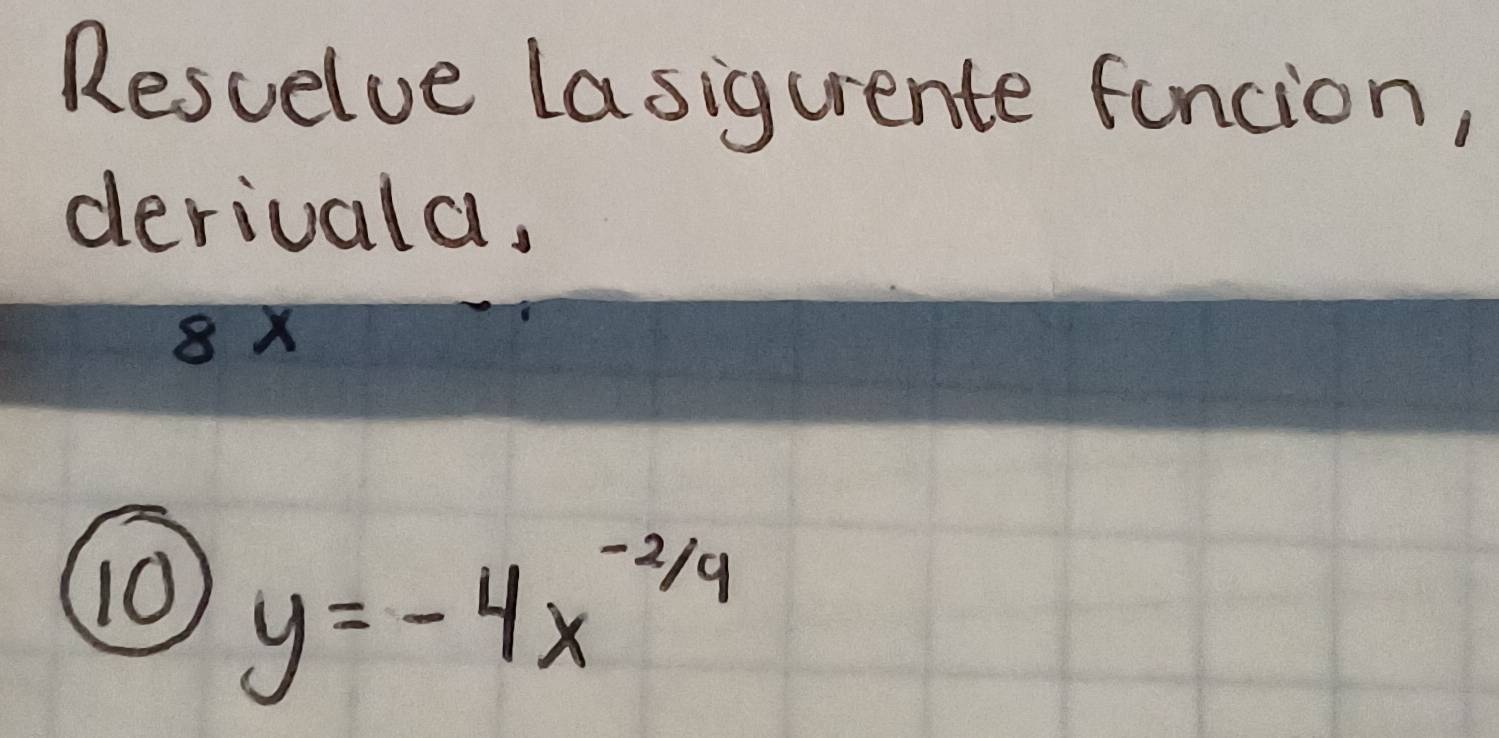 Resuelve la siguiente funcion,
derivala,
8 x
10 y = - 4x^-2/9